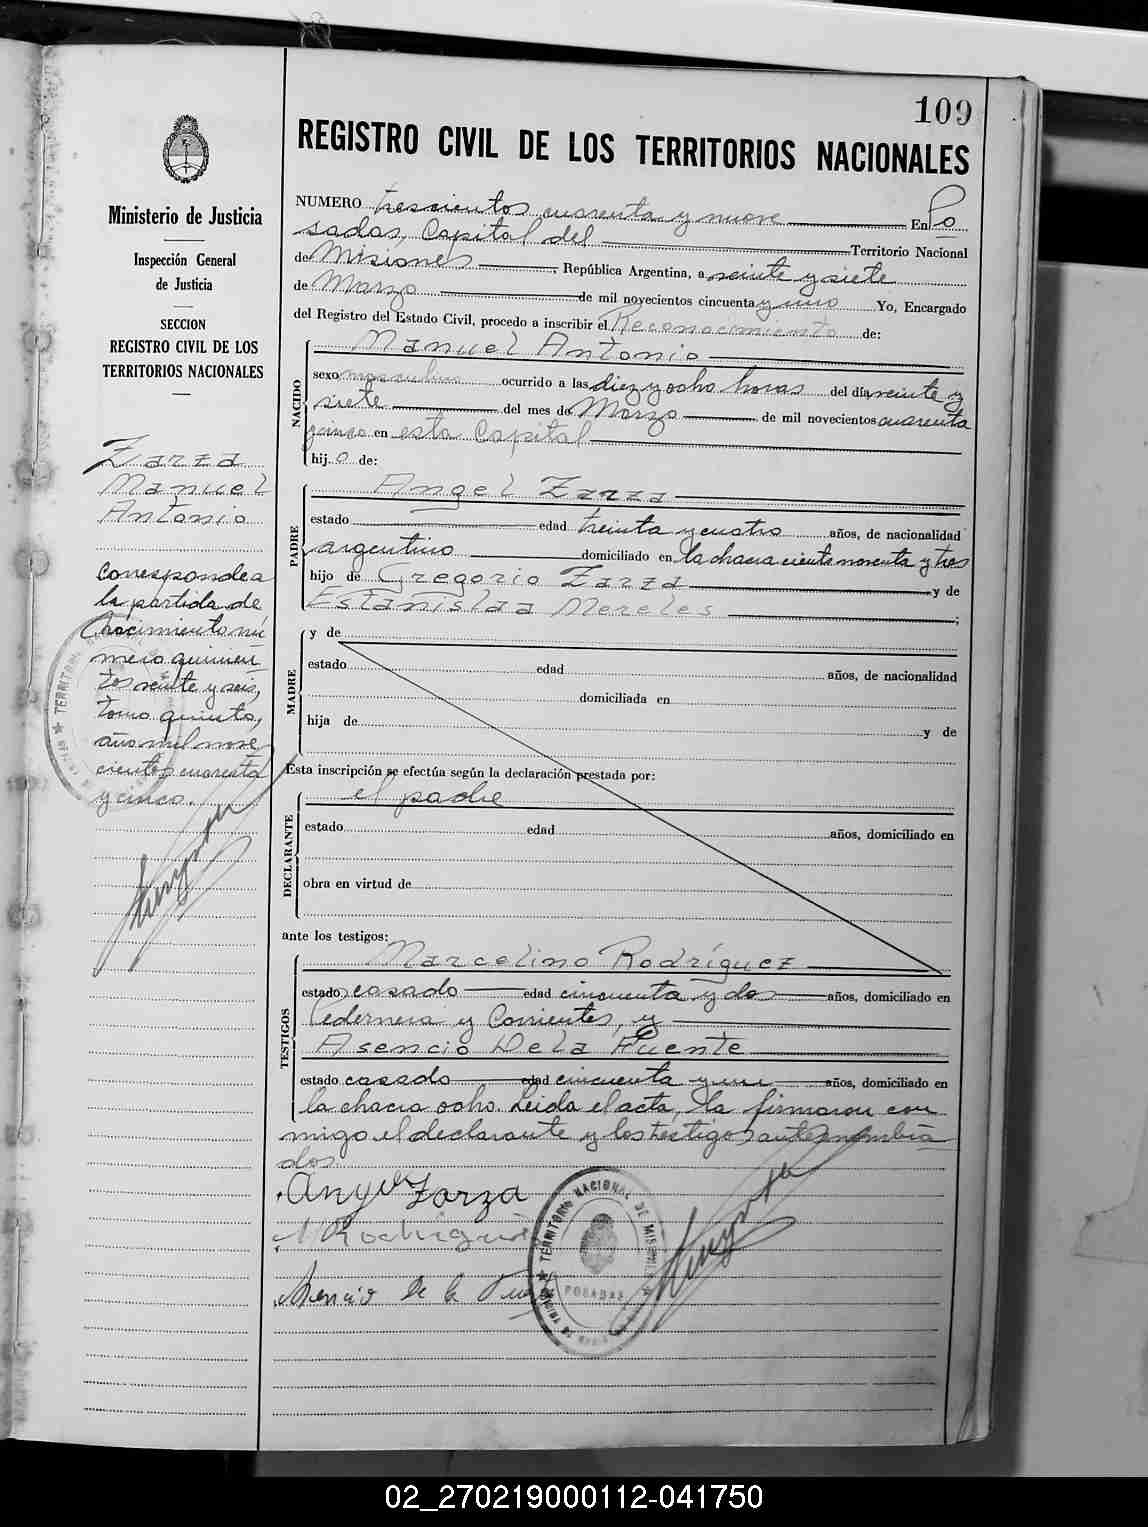 109
REGISTRO CIVIL DE LOS TERRITORIOS NACIONALES
Ministerio de Justicia
Inspección General
de Justicia
SECCION
REGISTRO CIVIL DE LOS
TERRITORIOS NACIONALES
Zarza
Manuel
Antonio
Corresponde a
la partida de
Nacimiento nú
mero quinien
tos veinte y seis,
tomo quinto,
año mil nove
cientos cuarenta
y cinco.
NUMERO trescientos cuarenta y nueve En Po
sadas, Capital del Territorio Nacional
de Misiones, República Argentina, a veinte y siete
de Marzo de mil novecientos cincuenta y uno Yo, Encargado
del Registro del Estado Civil, procedo a inscribir el Reconocimiento de:
NACIDO
Manuel Antonio
sexo masculino ocurrido a las diez y ocho horas del día veinte y
siete del mes de Marzo de mil novecientos cuarenta
y cinco en esta Capital
hijo de:
PADRE
Angel Zarza
estado edad treinta y cuatro años, de nacionalidad
argentino domiciliado en la chacra ciento noventa y tres
hijo de Gregorio Zarza y de
Estanislaa Mereles ;
MADRE
y de
estado edad años, de nacionalidad
domiciliada en
hija de y de
Esta inscripción se efectúa según la declaración prestada por:
DECLARANTE
el padre
estado edad años, domiciliado en
obra en virtud de
ante los testigos:
TESTIGOS
Marcelino Rodríguez
estado casado edad cincuenta y dos años, domiciliado en
Cedernera y Corrientes, y
Asencio De la Fuente
estado casado edad cincuenta y un años, domiciliado en
la chacra ocho. Leida el acta, la firmaron con
migo el declarante y los testigos antenombra
dos.
Angel Zarza
M Rodriguez
Asencio de la Fuente
TERRITORIO NACIONAL DE MISIONES
POSADAS
02_270219000112-041750